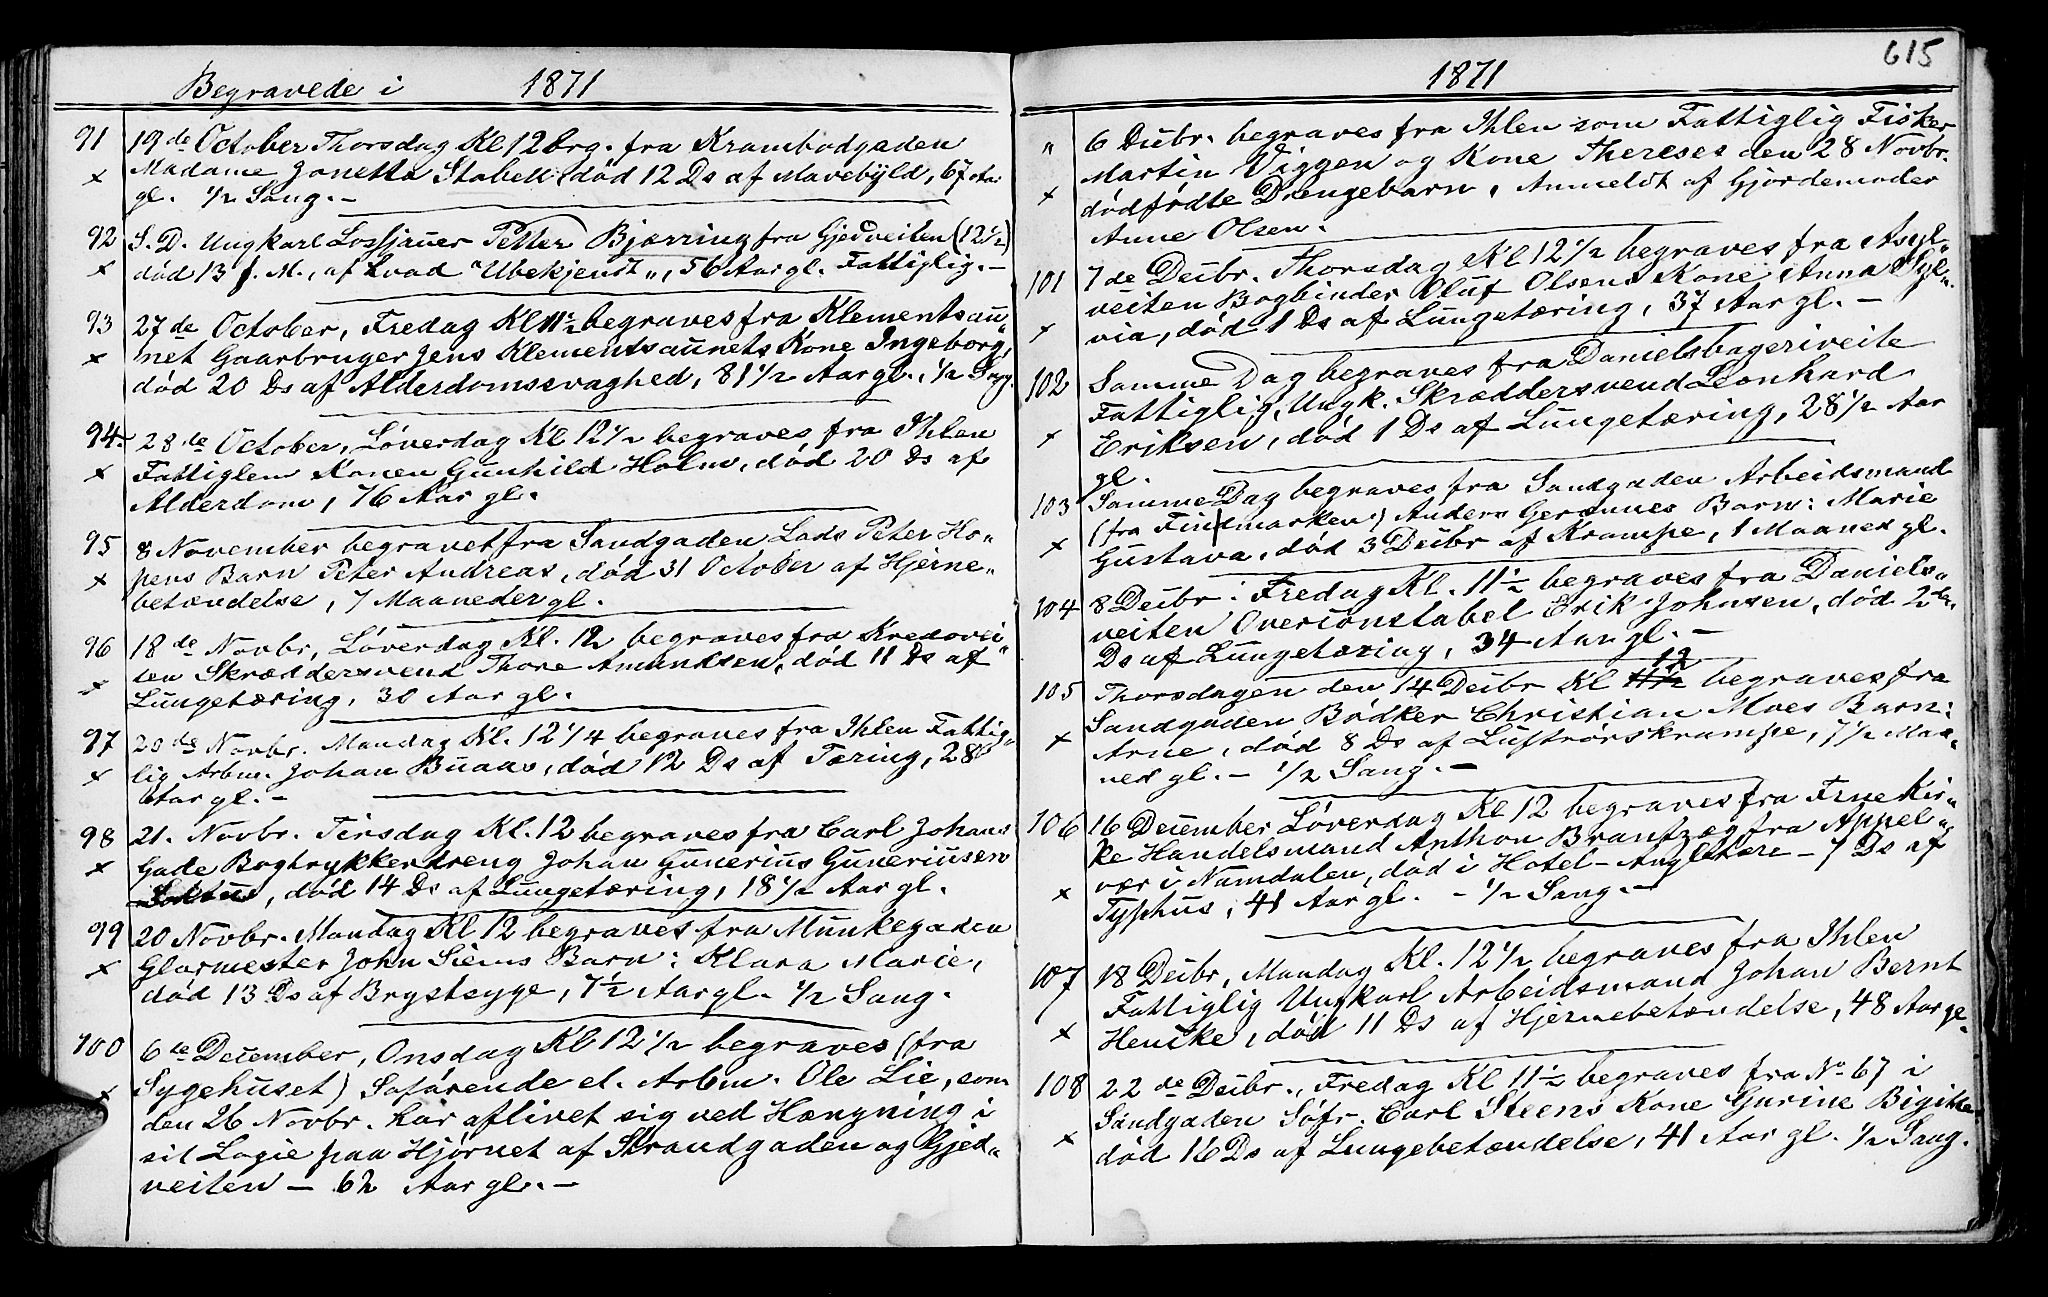 Begravede i 1871
91 19de October Thorsdag Kl 12 Prg. fra Krambodgaden
x Madame Jonetta Stabell død 12 Ds af Mavebyld, 67 Aar
gl. 1/2 Sang. —
92 S. D. Ungkarl Lossjauer Petter Bjærring fra Gjedveiten (12 1/2)
x død 13 f. M., af hvad "Ubekjendt", 56 Aar gl. Fattiglig. —
93 27de October, Fredag Kl 11 1/2 begraves fra Klementsaun„
x net Gaarbruger Jens Klementsaunets Kone Ingeborg,
død 20 Ds af Alderdomssvaghed, 81 1/2 Aar gl., 1/2 Sang.
94. 28de October, Løverdag Kl 12 1/2 begraves fra Ihlen
x Fattiglem Konen Gunhild Holm, død 20 Ds af
Alderdom, 76 Aar gl.
95 8 November begravet fra Sandgaden Lods Peter Ho„
x pens Barn Peter Andreas, død 31 October af Hjerne„
betændelse, 7 Maaneder gl.
96 18de Novbr, Løverdag Kl. 12 begraves fra Kredovei„
x ten Skræddersvend Thore Amundsen, død 11 Ds af
Lungetæring, 30 Aar gl.
97 20de Novbr. Mandag Kl. 12 1/4 begraves fra Ihlen Fattig„
x lig Arbm. Johan Buaas, død 12 Ds af Tæring, 28
Aar gl. —
98 21. Novbr. Tirsdag Kl. 12 begraves fra Carl Johans
x Gade Bogtrykkerdreng Johan Gunerius Guneriusen
, død 14 Ds af Lungetæring, 18 1/2 Aar gl.
99 20 Novbr. Mandag Kl 12 begraves fra Munkegaden
x Glarmester John Siems Barn: Klara Marie,
død 13 Ds af Brystsyge, 7 1/2 Aar gl. 1/2 Sang.
100 6te December, Onsdag Kl 12 1/2 begraves (fra
x Sygehuset) Søfarende el. Arbm. Ole Lie, som
den 26 Novbr. har aflivet sig ved Hængning i
sit Logie paa Hjørnet af Strandgaden og Gjed„
veiten — 62 Aar gl. —
615
1871
" 6 Decbr. begraves fra Ihlen som Fattiglig Fisker
Martin Viggen og Kone Thereses den 28 Novbr.
x dødfødte Drengebarn, Anmeldt af Gjordemoder
Anne Olsen.
101 7de Decbr. Thorsdag Kl 12 1/2 begraves fra Asyl„
veiten Bogbinder Oluf Olsens Kone Anna Syl„
x via, død 1 Ds af Lungetæring, 37 Aar gl. —
102 Samme Dag begraves fra Danielsbageriveite
Fattiglig, Ungk. Skræddersvend Leonhard
x Eriksen, død 1 Ds af Lungetæring, 28 1/2 Aar
gl.
103 Samme Dag begraves fra Sandgaden Arbeidsmand
(fra Findmarken) Anders Barn: Marie
x Gustava, død 3 Decbr af Krampe, 1 Maaned gl.
104 8 Decbr: Fredag Kl. 11 1/2 begraves fra Daniels„
veiten Overconstabel Erik Johnsen, død 2den
Ds af Lungetæring, 34 Aar gl. —
105 Thorsdagen den 14 Decbr Kl 11 1/2 12 begraves fra
Sandgaden Bødker Christian Moes Barn:
x Arne, død 8 Ds af Luftrørskrampe, 7 1/2 Maa„
ned gl. — 1/2 Sang. —
106 16 December Løverdag Kl 12 begraves fra Frue Kir„
ke Handelsmand Anthon Brantzæg fra Appel„
x vær i Namdalen, død i Hotel-Angleterre — 7 Ds af
Typhus, 41 Aar gl. — 1/2 Sang. —
107 18 Decbr, Mandag Kl. 12 1/2 begraves fra Ihlen
Fattiglig Ungkarl Arbeidsmand Johan Bernt
x Hencke, død 11 Ds af Hjernebetændelse, 48 Aar gl.
108 22de Decbr., Fredag Kl 11 1/2 begraves fra No 67 i
Sandgaden Søfr. Carl Steens Kone Gurine Bigitte
x død 16 Ds af Lungebetændelse, 41 Aar gl. 1/2 Sang.